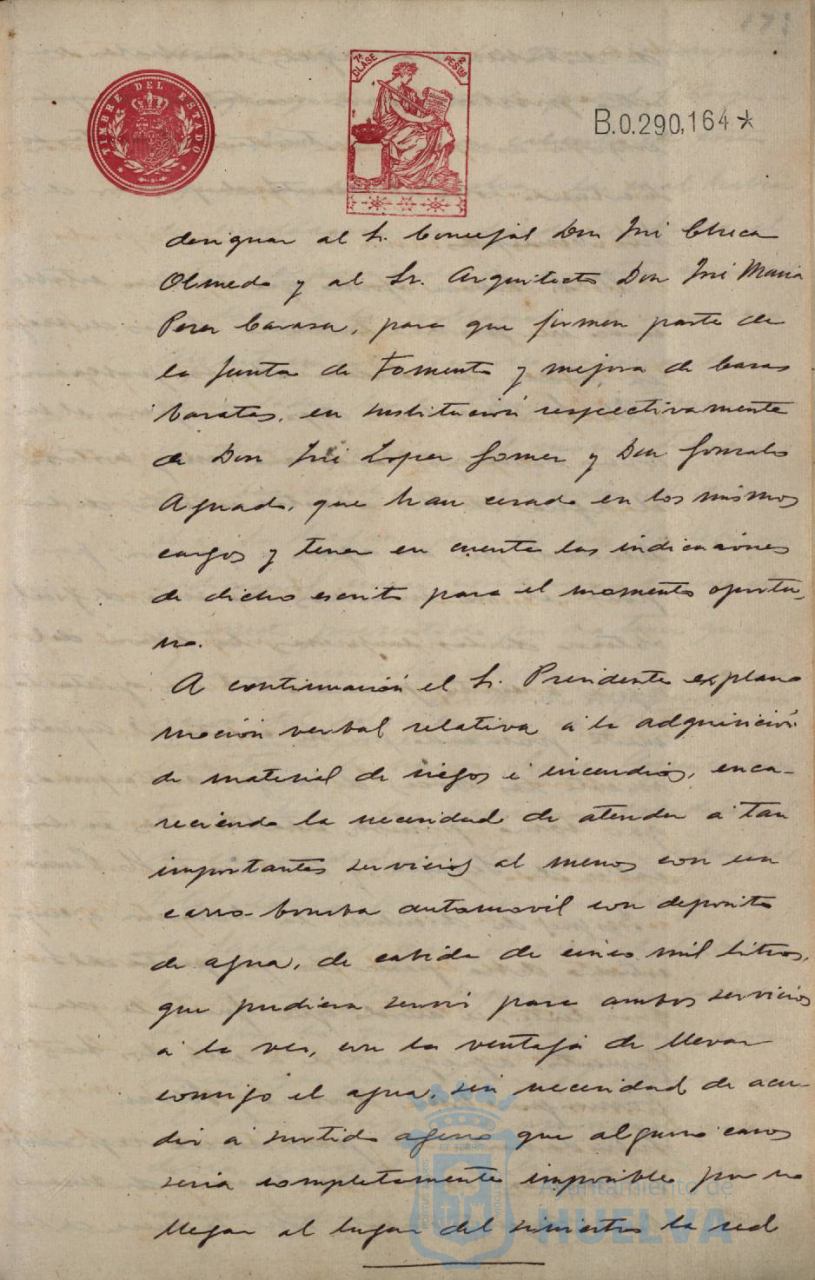 TIMBRE DEL ESTADO
7ª CLASE
2 PESETAS
B.0.290,164*
designar al Sr. Concejal Don José Checa
Olmedo y al Sr. Arquitecto Don José Maria
Perez Carasa, para que formen parte de
la Junta de Fomento y mejora de Casas
baratas, en sustitución respectivamente
de Don José Lopez Gomez y Don Gonzalo
Aguado, que han cesado en los mismos
cargos y tener en cuenta las indicaciones
de dicho escrito para el momento oportu-
no.
A continuación el Sr. Presidente explana
moción verbal relativa á la adquisición
de material de riegos é incendios, enca-
reciendo la necesidad de atender a tan
importantes servicios al menos con un
carro-bomba automovil con deposito
de agua, de cabida de cinco mil litros,
que pudiera servir para ambos servicios
á la vez, con la ventaja de llevar
consigo el agua, sin necesidad de acu
dir á surtido ageno que alguno casos
seria completamente imposible por no
llegar al lugar del siniestro la red
Ayuntamiento de
HUELVA